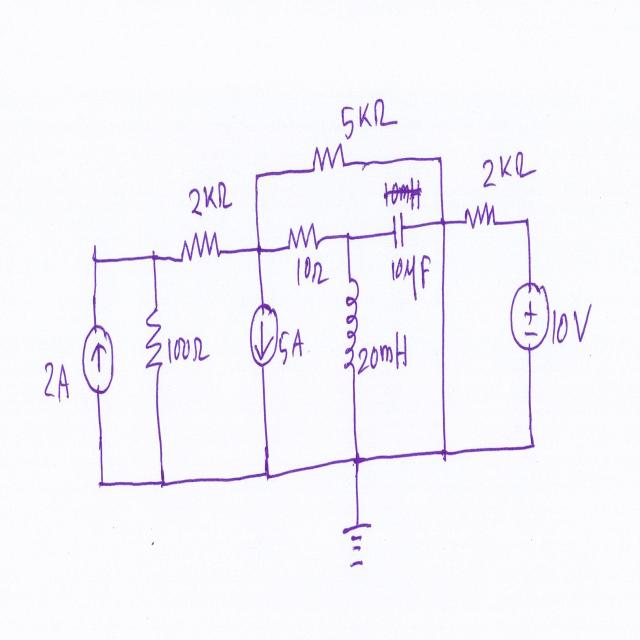 5KΩ
2KΩ
2KΩ
10Ω
10μF
2A
100Ω
5A
20mH
10V